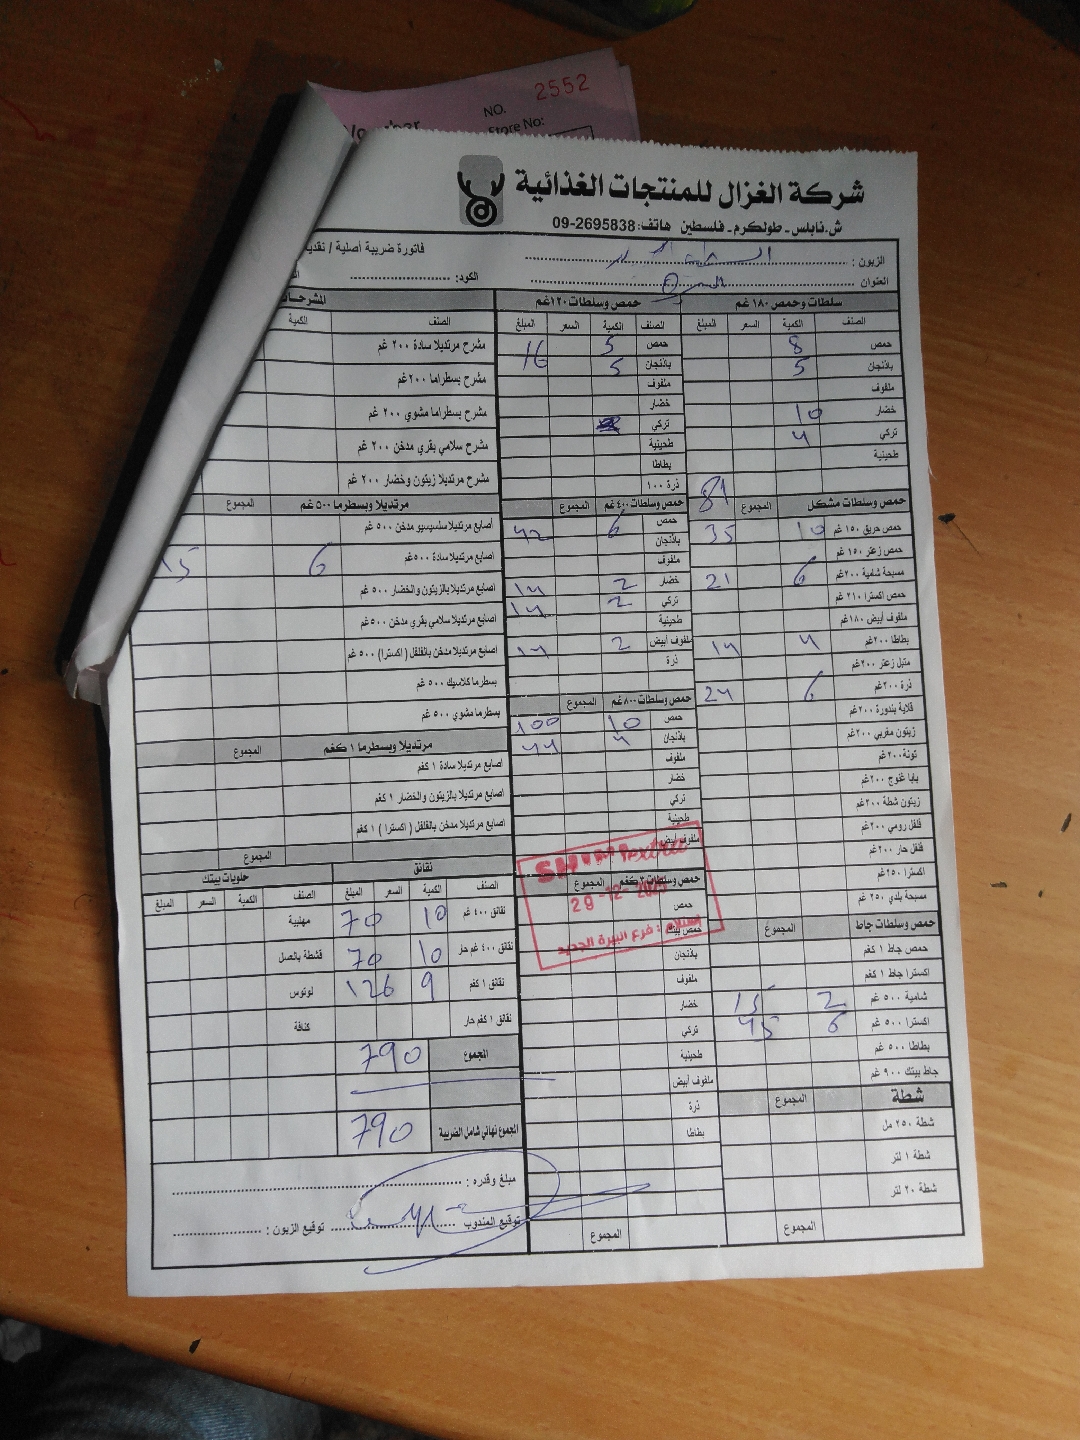 NO. 2552
Store No:
شركة الغزال للمنتجات الغذائية
ش.نابلس - طولكرم - فلسطين هاتف: 2695838-09
فاتورة ضريبة أصلية / نقدية
الزبون :
الكود:
العنوان
سلطات وحمص ١٨٠ غم
الصنف الكمية السعر المبلغ
حمص 8
باذنجان 5
ملفوف
خضار 10
تركي 4
طحينية
81
حمص وسلطات مشكل المجموع
حمص حريق ١٥٠ غم 10 35
حمص زعتر ١٥٠ غم
مسبحة شامية ٢٠٠غم 6 21
حمص اكسترا ٢١٠ غم
ملفوف أبيض ١٨٠غم
بطاطا ٢٠٠غم 4 14
متبل زعتر ٢٠٠غم
ذرة ٢٠٠غم 6 24
قلاية بندورة ٢٠٠غم
زيتون مغربي ٢٠٠غم
تونة ٢٠٠غم
بابا غنوج ٢٠٠غم
زيتون شطة ٢٠٠غم
فلفل رومي ٢٠٠غم
فلفل حار ٢٠٠غم
اكسترا ٢٥٠غم
مسبحة بلدي ٢٥٠ غم
حمص وسلطات جاط المجموع
حمص جاط ١ كغم
اكسترا جاط ١ كغم
شامية ٥٠٠ غم 2 15
اكسترا ٥٠٠ غم 6 45
بطاطا ٥٠٠ غم
جاط بيتك ٩٠٠ غم
شطة المجموع
شطة ٢٥٠ مل
شطة ١ لتر
شطة ٢٠ لتر
المجموع
حمص وسلطات ١٢٠غم
الصنف الكمية السعر المبلغ
حمص 5 16
باذنجان 5
ملفوف
خضار
تركي
طحينية
بطاطا
ذرة ١٠٠
حمص وسلطات ٤٠٠ غم المجموع
حمص 6 42
باذنجان
ملفوف
خضار 2 14
تركي 2 14
طحينية
ملفوف أبيض 2 14
ذرة
حمص وسلطات ٨٠٠غم المجموع
حمص 10 100
باذنجان 4 44
ملفوف
خضار
تركي
طحينية
ملفوف أبيض
حمص وسلطات ٣كغم المجموع
حمص
حمص بيتك
باذنجان
ملفوف
خضار
تركي
طحينية
ملفوف أبيض
ذرة
بطاطا
المجموع
extra
استلام : فرع البيرة الجديد
الصنف الكمية
مشرح مرتديلا سادة ٢٠٠ غم
مشرح بسطراما ٢٠٠غم
مشرح بسطراما مشوي ٢٠٠ غم
مشرح سلامي بقري مدخن ٢٠٠ غم
مشرح مرتديلا زيتون وخضار ٢٠٠ غم
مرتديلا وبسطرما ٥٠٠ غم المجموع
أصابع مرتديلا سلسيسيو مدخن ٥٠٠ غم
اصابع مرتديلا سادة ٥٠٠غم 6
اصابع مرتديلا بالزيتون والخضار ٥٠٠ غم
اصابع مرتديلا سلامي بقري مدخن ٥٠٠غم
اصابع مرتديلا مدخن بالفلفل (اكسترا) ٥٠٠ غم
بسطرما كلاسيك ٥٠٠ غم
بسطرما مشوي ٥٠٠ غم
مرتديلا وبسطرما ١ كغم المجموع
اصابع مرتديلا سادة ١ كغم
اصابع مرتديلا بالزيتون والخضار ١ كغم
اصابع مرتديلا مدخن بالفلفل ( اكسترا ) ١ كغم
المجموع
نقانق
الصنف الكمية السعر المبلغ
نقانق ٤٠٠ غم 10 70
نقانق ٤٠٠ غم حار 10 70
نقانق ١ كغم 9 126
نقانق ١ كغم حار
حلويات بيتك
الصنف الكمية السعر المبلغ
مهلبية
قشطة بالعسل
لوتوس
كنافة
المجموع 790
المجموع نهائي شامل الضريبة 790
مبلغ وقدره :
توقيع المندوب توقيع الزبون :